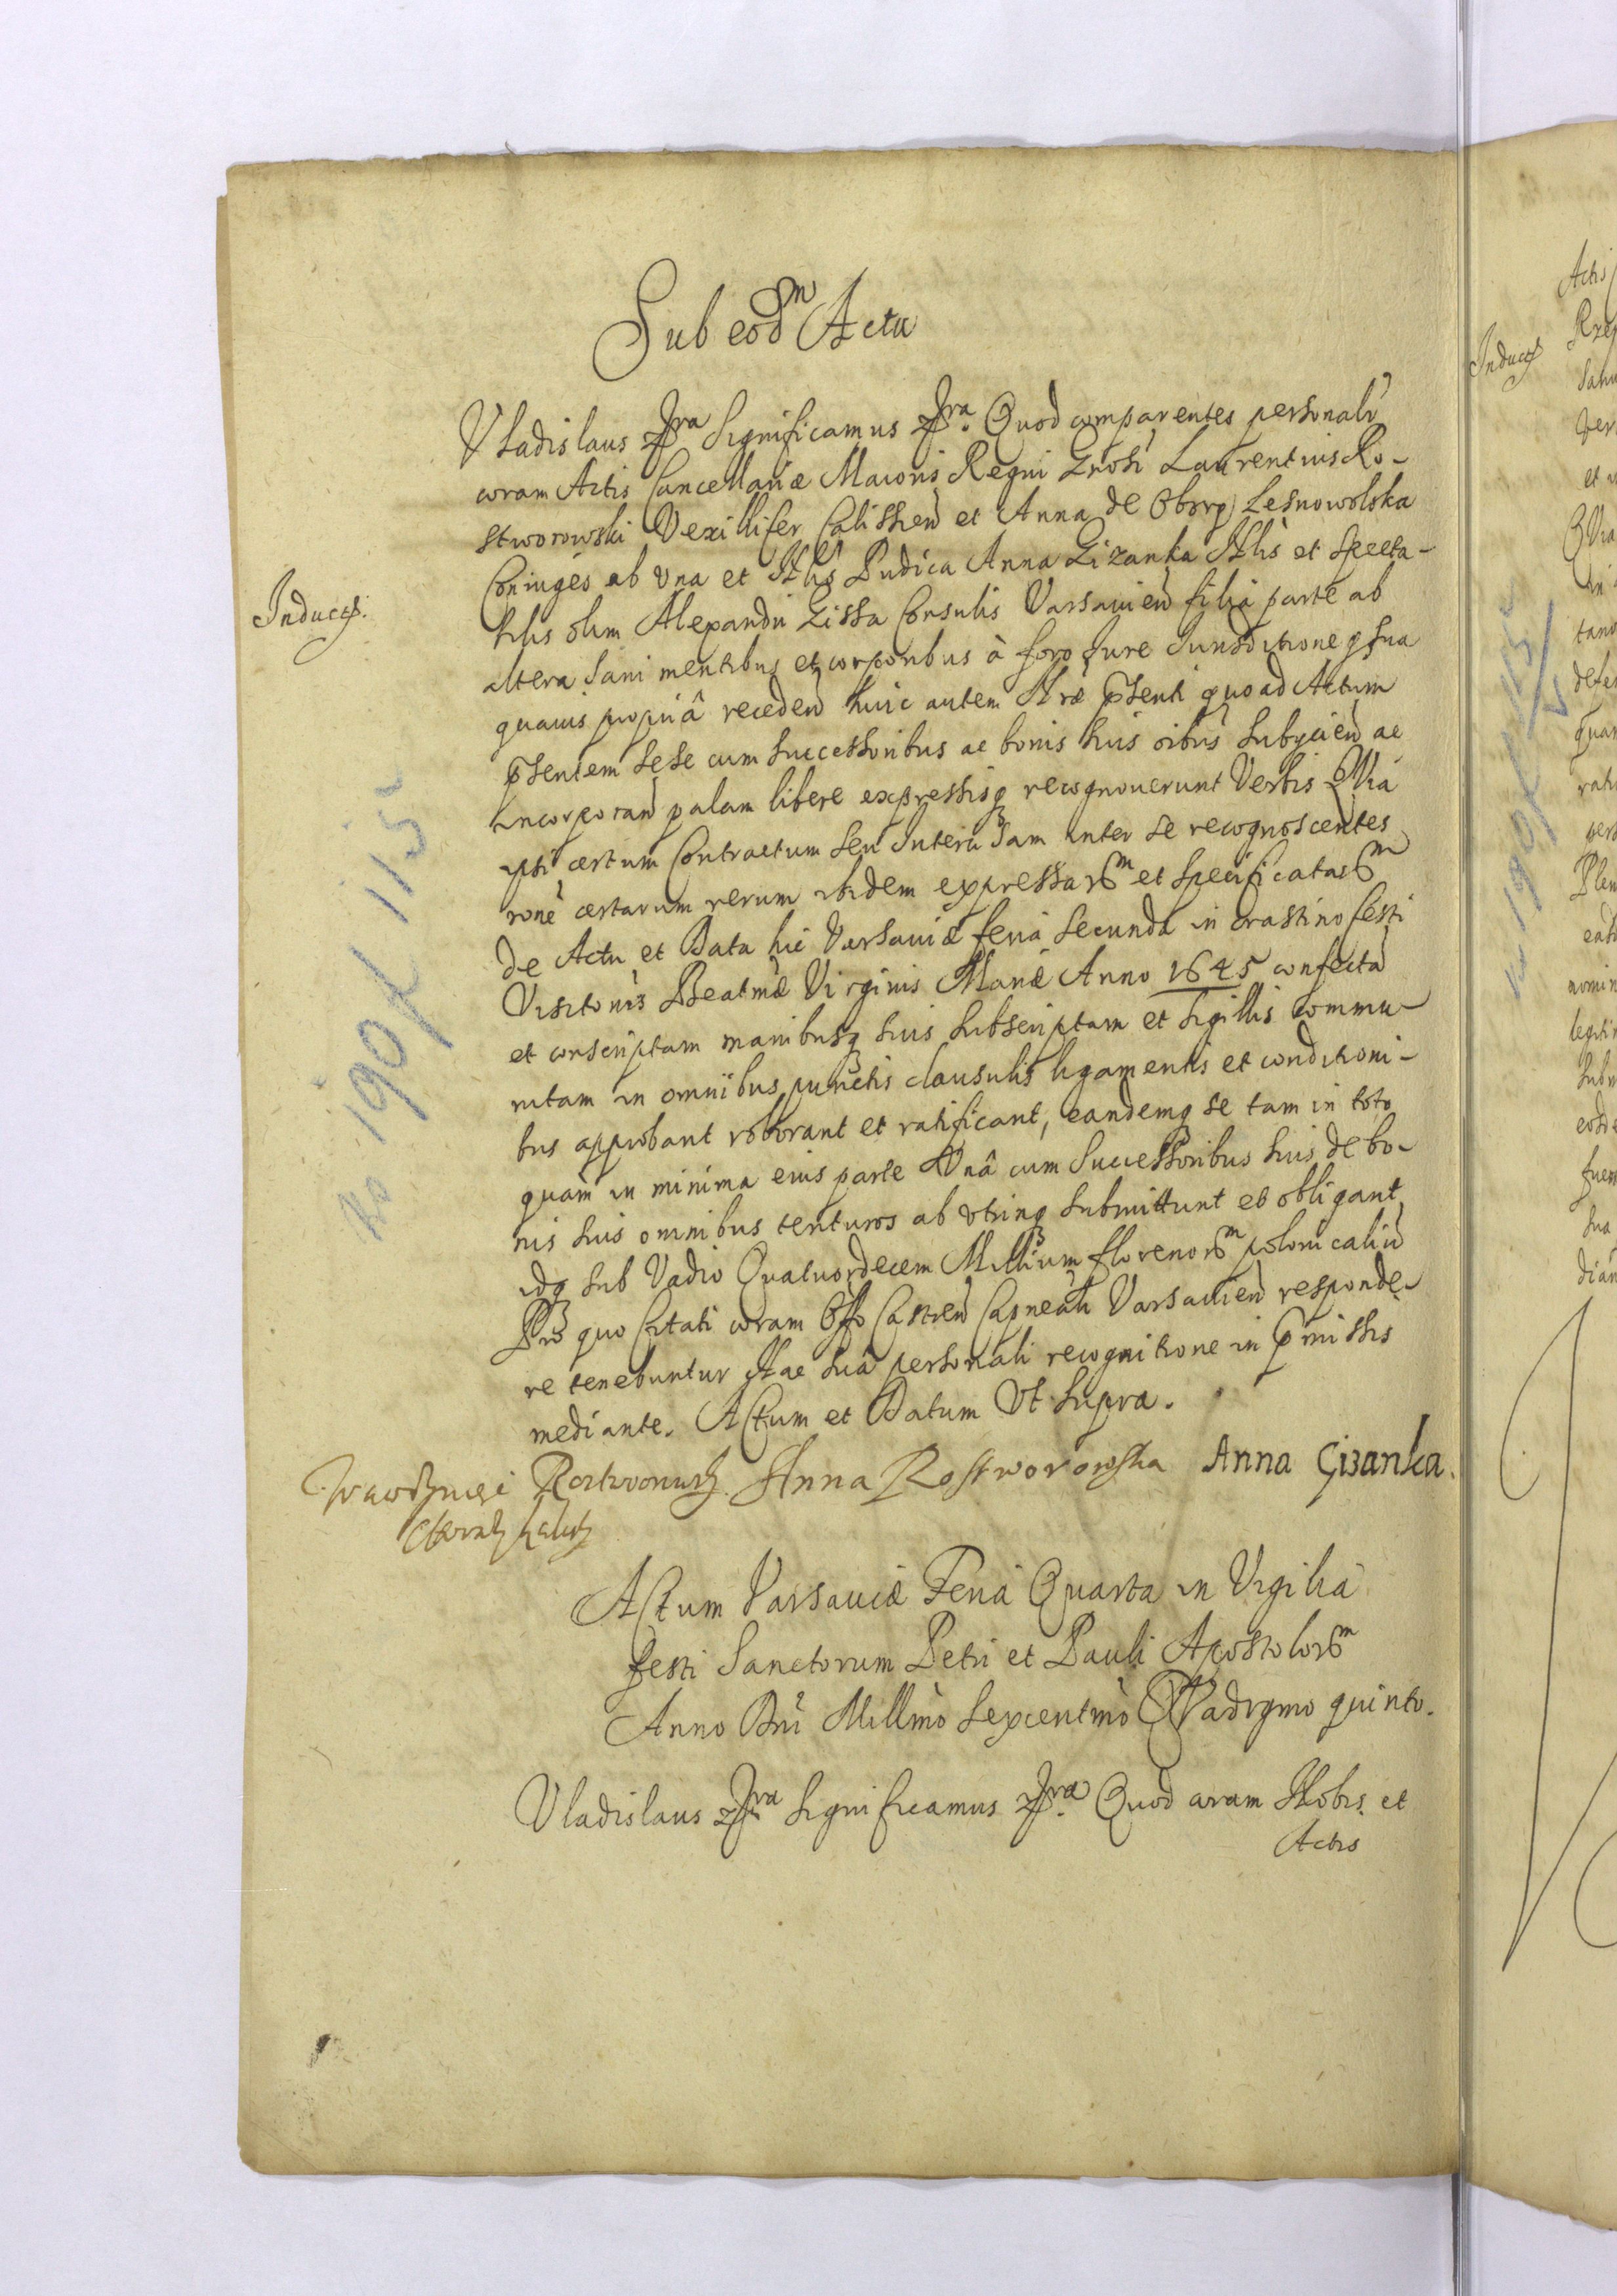 Sub eodm Actu
Vladislaus etc. Significamus etc. Quod comparentes personalr
coram Actis Cancellariæ Maioris Regni Gnosi Laurentius Ro-
stworowski Vexillifer Calissień et Anna de Obory Lesnowolska
Coniuges ab una et Nlis Pudica Anna Gizanka Nlis et Specta-
Inducta.
bilis olim Alexandri Gissa Consulis Varsavień filia parte ab
altera Sani mentibus et corporibus à foro Jure Jurisditioneq sua
quavis propriâ recedeń huic autem Nræ pñsenti quoad Actum
pñsentem sese cum successoribus ac bonis suis oibus subijcień ac
incorporań palam libere expressisq recognoverunt Verbis Quia
ipsi certum Contractum seu Intercisam inter se recognoscentes
rone certarum rerum ibidem expressarm et specificatarm
de Actu et Data hic Varsaviæ feria secunda in crastino festi
Visitonis Beatmæ Virginis Mariæ Anno 1645 confectã
et conscriptam manibusq suis subscriptam et sigillis commu-
nitam in omnibus punctis clausulis ligamentis et conditioni-
bus approbant roborant et ratificant, eandemq se tam in toto
quam in minima eius parte Unâ cum Successoribus suis de bo-
nis suis omnibus tenturos ab utrinq submittunt et obligant,
idq sub Vadio Quatuordecem Millium florenorm polonicaliũ
Pro quo Citati coram Offo Castreń Capneali Varsavień responde-
re tenebuntur Hac sua personali recognitione in pmissis
mediante. Actum et Datum Ut supra.
Rostworowski Anna Rostworowska Anna Gizanka.
Actum Varsaviæ Feria Quarta in Vigilia
festi Sanctorum Petri et Pauli Apostolorm
Anno Dni Millmo Sexcentmo Quadrgmo quinto.
Vladislaus etc. Significamus etc. Quod coram Nobis et
Actis